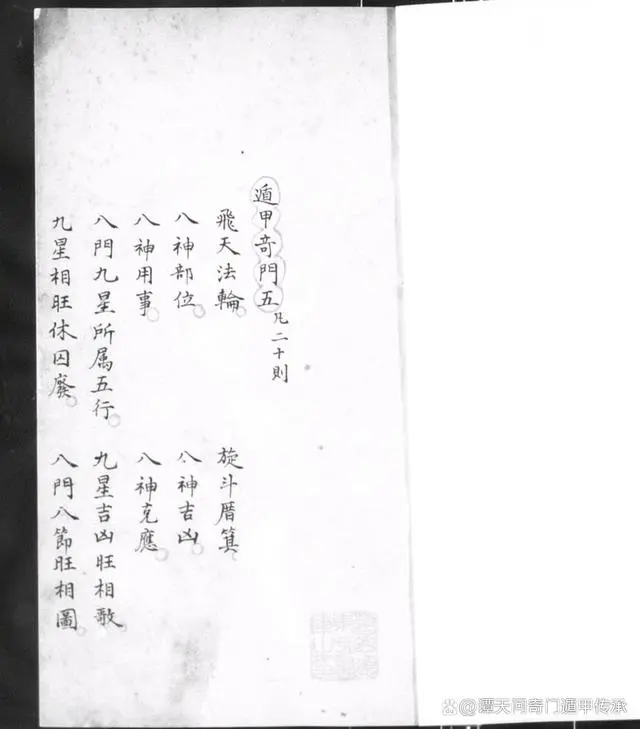 遁甲奇門五 凡二十則
飛天法輪 旋斗曆箕
八神部位 八神吉凶
八神用事 八神克應
八門九星所属五行 九星吉凶旺相歌
九星相旺休囚廢 八門八節旺相圖
潭天同奇门遁甲传承